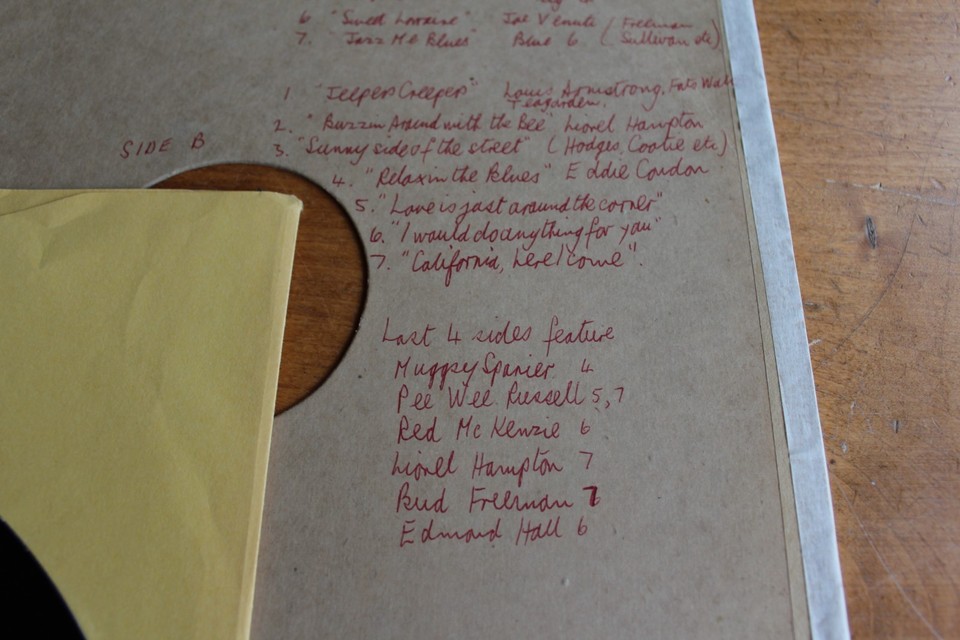 6. "Sweet Lorraine" Joe Venuti (Freeman
7. "Jazz Me Blues" Blue 6 (Sullivan etc)
SIDE B
1 "Jeepers Creepers" Louis Armstrong, Fats Wall
Teagarden
2. "Buzzin Around with the Bee" Lionel Hampton
3. "Sunny side of the street" (Hodges, Cootie etc)
4. "Relaxin the Blues" Eddie Condon
5. "Love is just around the corner"
6. "I would do anything for you"
7. "California, here I come".
Last 4 sides feature
Muggsy Spanier 4
Pee Wee Russell 5,7
Red McKenzie 6
Lionel Hampton 7
Bud Freeman 7
Edmond Hall 6